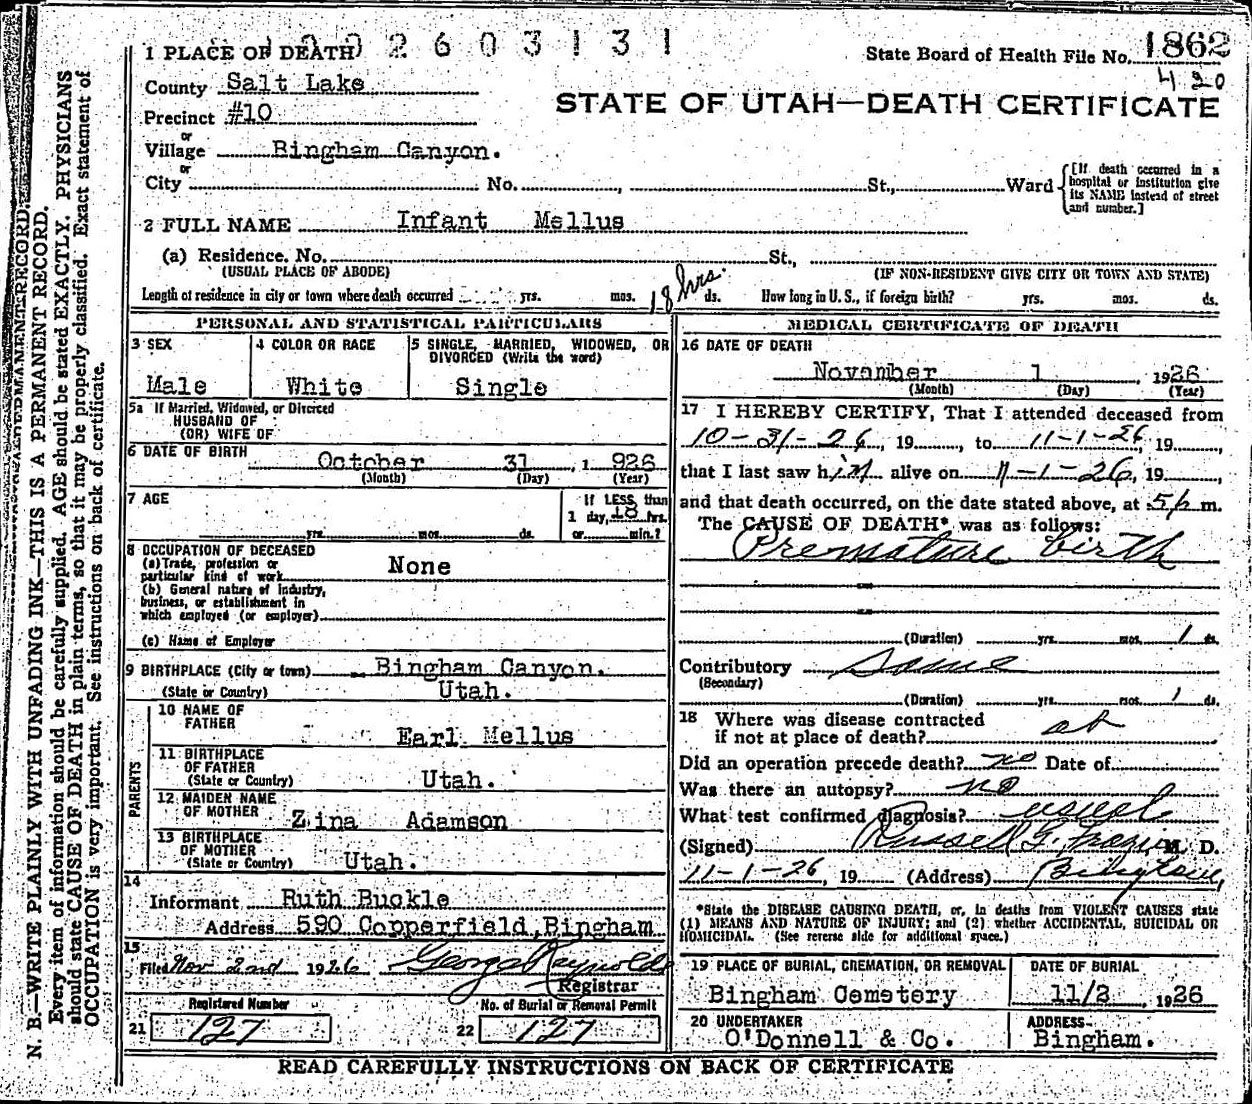 1 PLACE OF DEATH 1002603131 State Board of Health File No. 1862
County Salt Lake 420
STATE OF UTAH—DEATH CERTIFICATE
Precinct #10
or
Village Bingham Canyon.
or
City No. , St., Ward [If death occurred in a hospital or institution give its NAME instead of street and number.]
2 FULL NAME Infant Mellus
(a) Residence. No. St.,
(USUAL PLACE OF ABODE) (IF NON-RESIDENT GIVE CITY OR TOWN AND STATE)
Length of residence in city or town where death occurred yrs. mos. 18 hrs. ds. How long in U. S., if foreign birth? yrs. mos. ds.
PERSONAL AND STATISTICAL PARTICULARS
3 SEX 4 COLOR OR RACE 5 SINGLE, MARRIED, WIDOWED, OR
DIVORCED (Write the word)
Male White Single
5a If Married, Widowed, or Divorced
HUSBAND OF
(OR) WIFE OF
6 DATE OF BIRTH
October 31 , 1 926
(Month) (Day) (Year)
7 AGE If LESS than
yrs. mos. ds. 1 day, 18 hrs.
or min.?
8 OCCUPATION OF DECEASED
(a) Trade, profession or
particular kind of work None
(b) General nature of industry,
business, or establishment in
which employed (or employer)
(c) Name of Employer
9 BIRTHPLACE (City or town) Bingham Canyon.
(State or Country) Utah.
PARENTS
10 NAME OF
FATHER Earl Mellus
11 BIRTHPLACE
OF FATHER
(State or Country) Utah.
12 MAIDEN NAME
OF MOTHER Zina Adamson
13 BIRTHPLACE
OF MOTHER
(State or Country) Utah.
14
Informant Ruth Buckle
Address 590 Copperfield, Bingham
15
Filed Nov 2nd 1926 George Reynolds
Registrar
Registered Number No. of Burial or Removal Permit
21 127 22 127
MEDICAL CERTIFICATE OF DEATH
16 DATE OF DEATH
November 1 , 1926
(Month) (Day) (Year)
17 I HEREBY CERTIFY, That I attended deceased from
10-31-26, 19 , to 11-1-26, 19 ,
that I last saw him alive on 11-1-26, 19 ,
and that death occurred, on the date stated above, at 5 p m.
The CAUSE OF DEATH* was as follows:
Premature birth
(Duration) yrs. mos. 1 ds.
Contributory Same
(Secondary)
(Duration) yrs. mos. 1 ds.
18 Where was disease contracted
if not at place of death? at
Did an operation precede death? no Date of
Was there an autopsy? no
What test confirmed diagnosis? usual
(Signed) Russell G. Frazier M. D.
11-1-26, 19 (Address) Bingham,
*State the DISEASE CAUSING DEATH, or, in deaths from VIOLENT CAUSES state
(1) MEANS AND NATURE OF INJURY; and (2) whether ACCIDENTAL, SUICIDAL OR
HOMICIDAL. (See reverse side for additional space.)
19 PLACE OF BURIAL, CREMATION, OR REMOVAL DATE OF BURIAL
Bingham Cemetery 11/2 , 1926
20 UNDERTAKER ADDRESS
O'Donnell & Co. Bingham.
READ CAREFULLY INSTRUCTIONS ON BACK OF CERTIFICATE
N. B.—WRITE PLAINLY WITH UNFADING INK—THIS IS A PERMANENT RECORD.
Every item of information should be carefully supplied. AGE should be stated EXACTLY. PHYSICIANS
should state CAUSE OF DEATH in plain terms, so that it may be properly classified. Exact statement of
OCCUPATION is very important. See instructions on back of certificate.